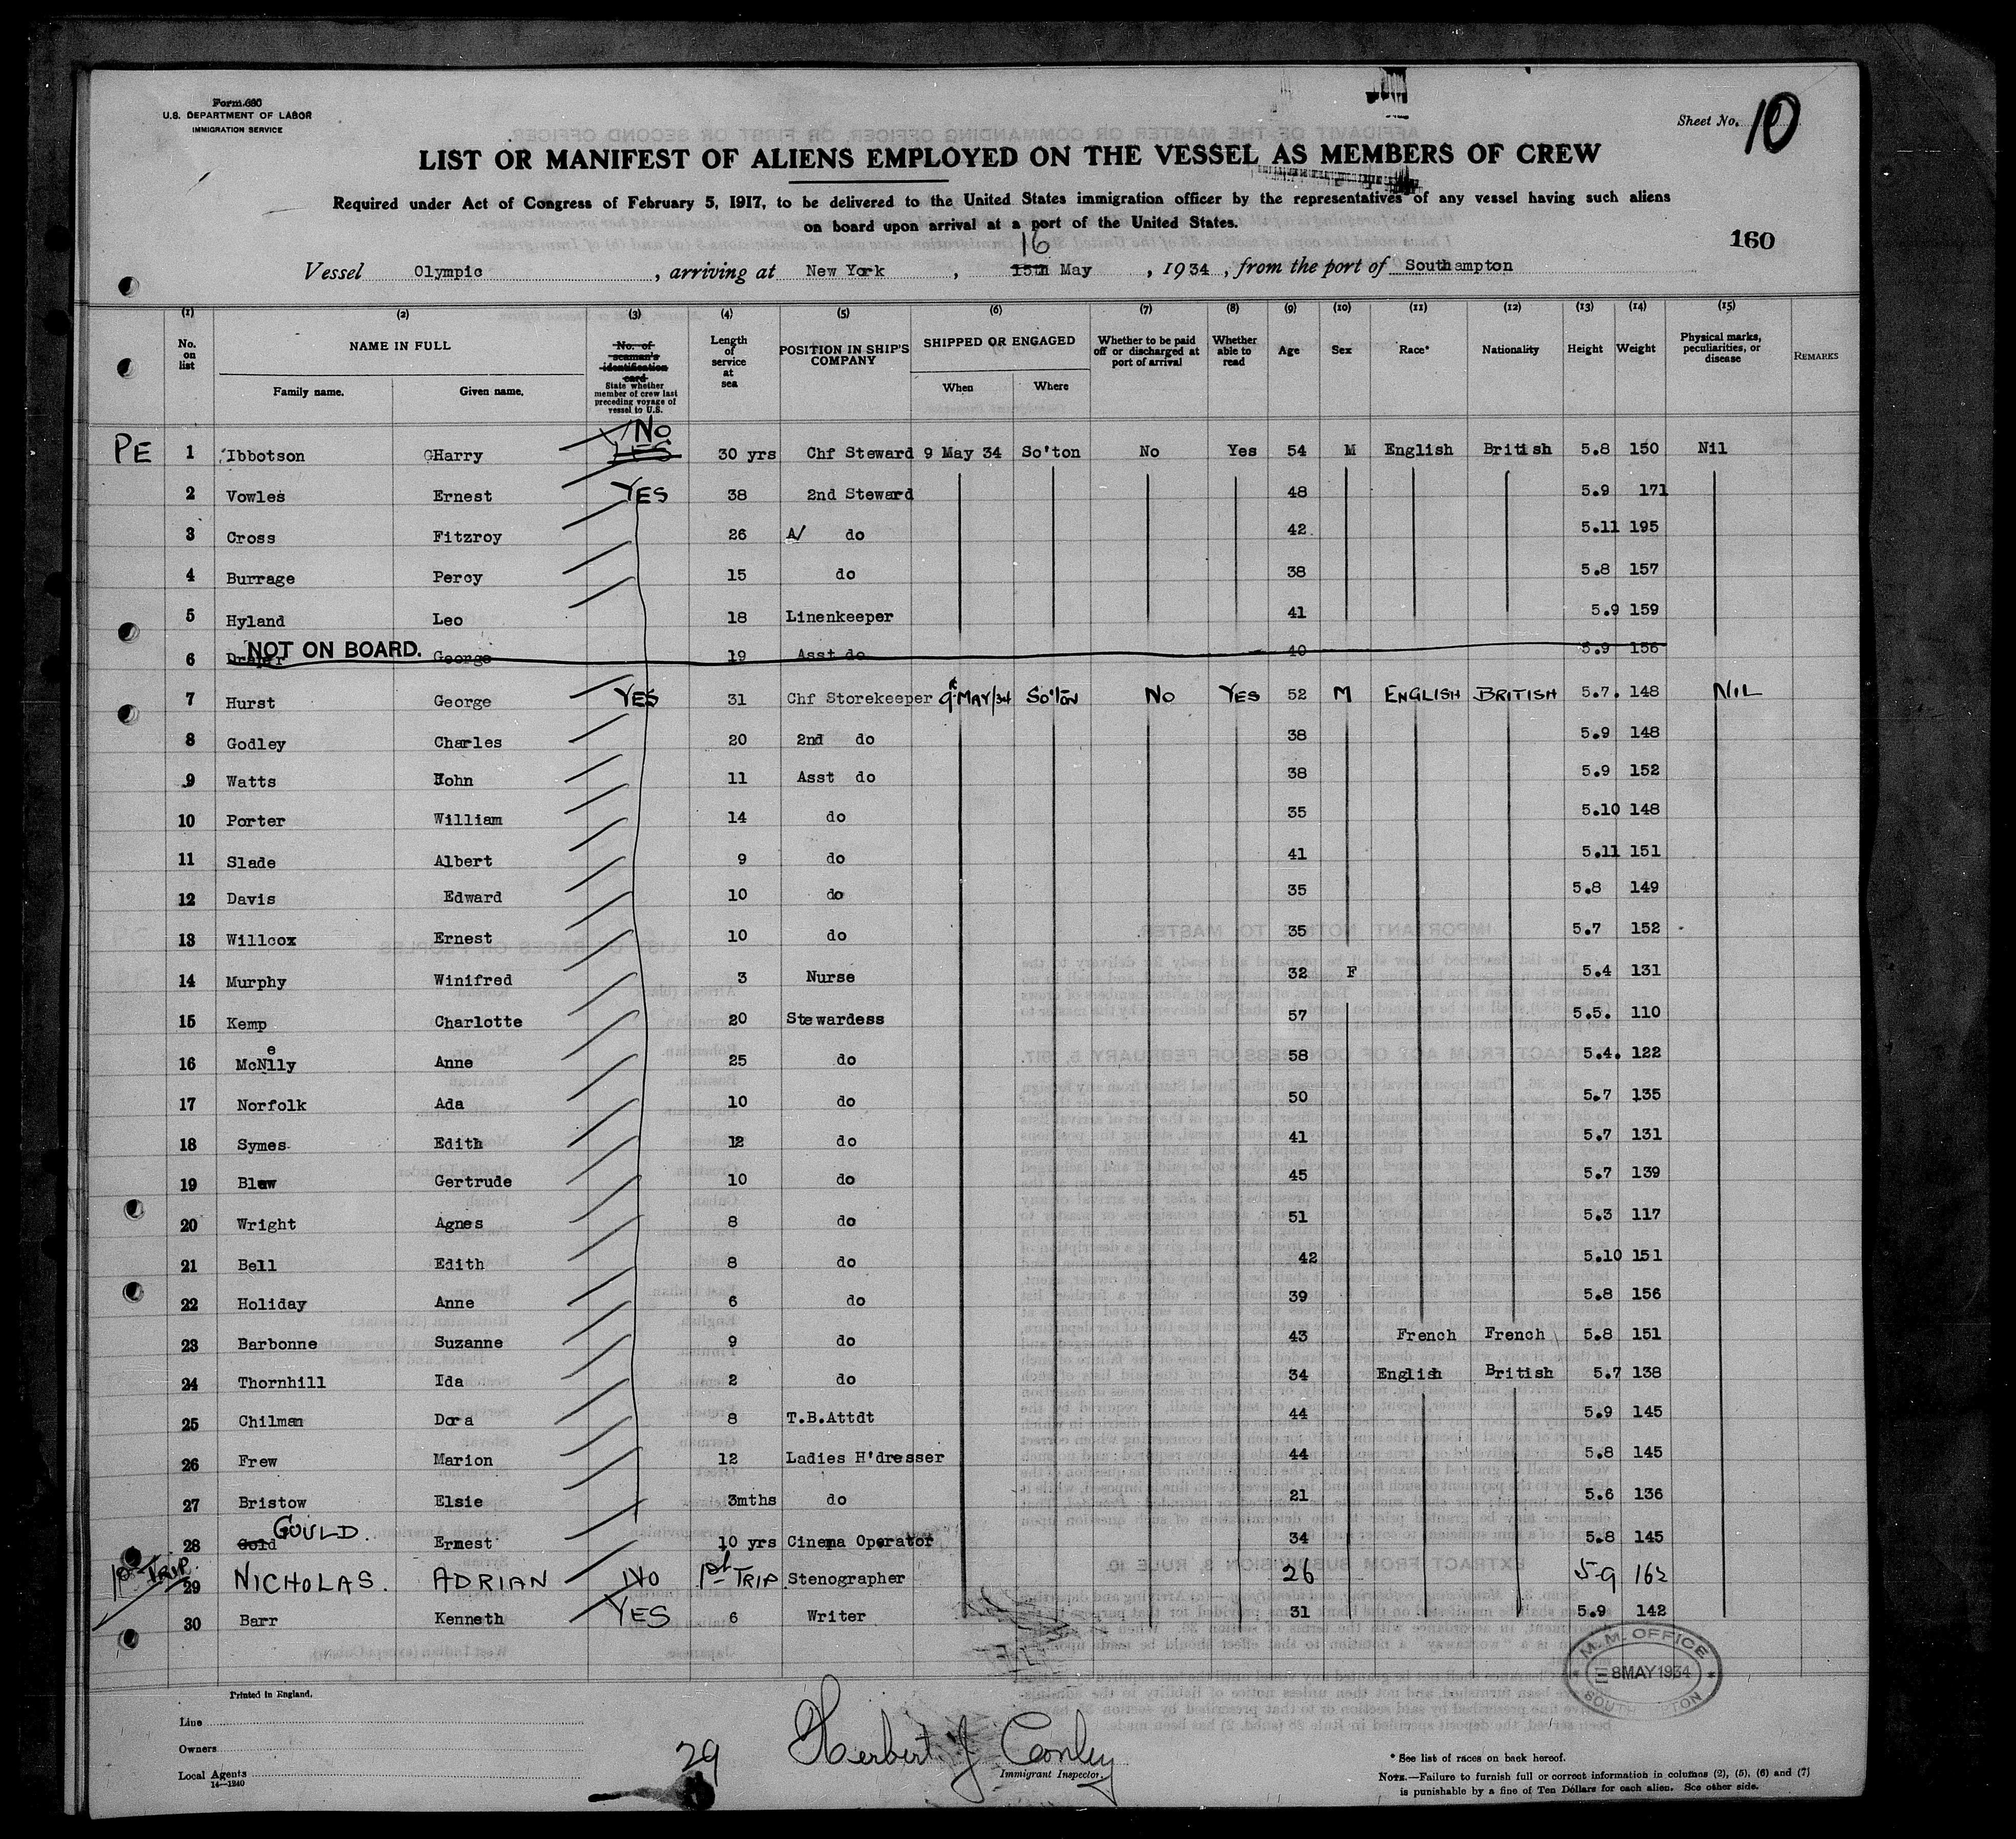 Form 680
U.S. DEPARTMENT OF LABOR
IMMIGRATION SERVICE
Sheet No. 10
LIST OR MANIFEST OF ALIENS EMPLOYED ON THE VESSEL AS MEMBERS OF CREW
Required under Act of Congress of February 5, 1917, to be delivered to the United States immigration officer by the representatives of any vessel having such aliens
on board upon arrival at a port of the United States.
160
16
Vessel Olympic, arriving at New York, 15th May, 1934, from the port of Southampton
(1) (2) (3) (4) (5) (6) (7) (8) (9) (10) (11) (12) (13) (14) (15)
No. on list NAME IN FULL Family name. Given name. No. of seaman's identification card State whether member of crew last preceding voyage of vessel to U.S. Length of service at sea POSITION IN SHIP'S COMPANY SHIPPED OR ENGAGED When Where Whether to be paid off or discharged at port of arrival Whether able to read Age Sex Race* Nationality Height Weight Physical marks, peculiarities, or disease REMARKS
NO
PE 1 Ibbotson GHarry YES 30 yrs Chf Steward 9 May 34 So'ton No Yes 54 M English British 5.8 150 Nil
2 Vowles Ernest YES 38 2nd Steward 48 5.9 171
3 Cross Fitzroy 26 A/ do 42 5.11 195
4 Burrage Percy 15 do 38 5.8 157
5 Hyland Leo 18 Linenkeeper 41 5.9 159
NOT ON BOARD.
6 Draper George 19 Asst do 40 5.9 156
7 Hurst George YES 31 Chf Storekeeper 9th MAY/34 So'ton NO YES 52 M ENGLISH BRITISH 5.7. 148 NIL
8 Godley Charles 20 2nd do 38 5.9 148
9 Watts Hohn 11 Asst do 38 5.9 152
10 Porter William 14 do 35 5.10 148
11 Slade Albert 9 do 41 5.11 151
12 Davis Edward 10 do 35 5.8 149
13 Willcox Ernest 10 do 35 5.7 152
14 Murphy Winifred 3 Nurse 32 F 5.4 131
15 Kemp Charlotte 20 Stewardess 57 5.5. 110
e
16 McNlly Anne 25 do 58 5.4. 122
17 Norfolk Ada 10 do 50 5.7 135
18 Symes Edith 12 do 41 5.7 131
19 Blew Gertrude 10 do 45 5.7 139
20 Wright Agnes 8 do 51 5.3 117
21 Bell Edith 8 do 42 5.10 151
22 Holiday Anne 6 do 39 5.8 156
23 Barbonne Suzanne 9 do 43 French French 5.8 151
24 Thornhill Ida 2 do 34 English British 5.7 138
25 Chilman Dora 8 T.B.Attdt 44 5.9 145
26 Frew Marion 12 Ladies H'dresser 44 5.8 145
27 Bristow Elsie 3mths do 21 5.6 136
GOULD.
28 Gold Ernest 10 yrs Cinema Operator 34 5.8 145
1st TRIP. 29 NICHOLAS. ADRIAN NO 1st TRIP Stenographer 26 5-9 162
30 Barr Kenneth YES 6 Writer 31 5.9 142
M.M. OFFICE
8 MAY 1934
Printed in England.
Line
Owners
Local Agents
14—1240
29
Herbert J Conley
Immigrant Inspector.
* See list of races on back hereof.
NOTE.—Failure to furnish full or correct information in columns (2), (5), (6) and (7)
is punishable by a fine of Ten Dollars for each alien. See other side.